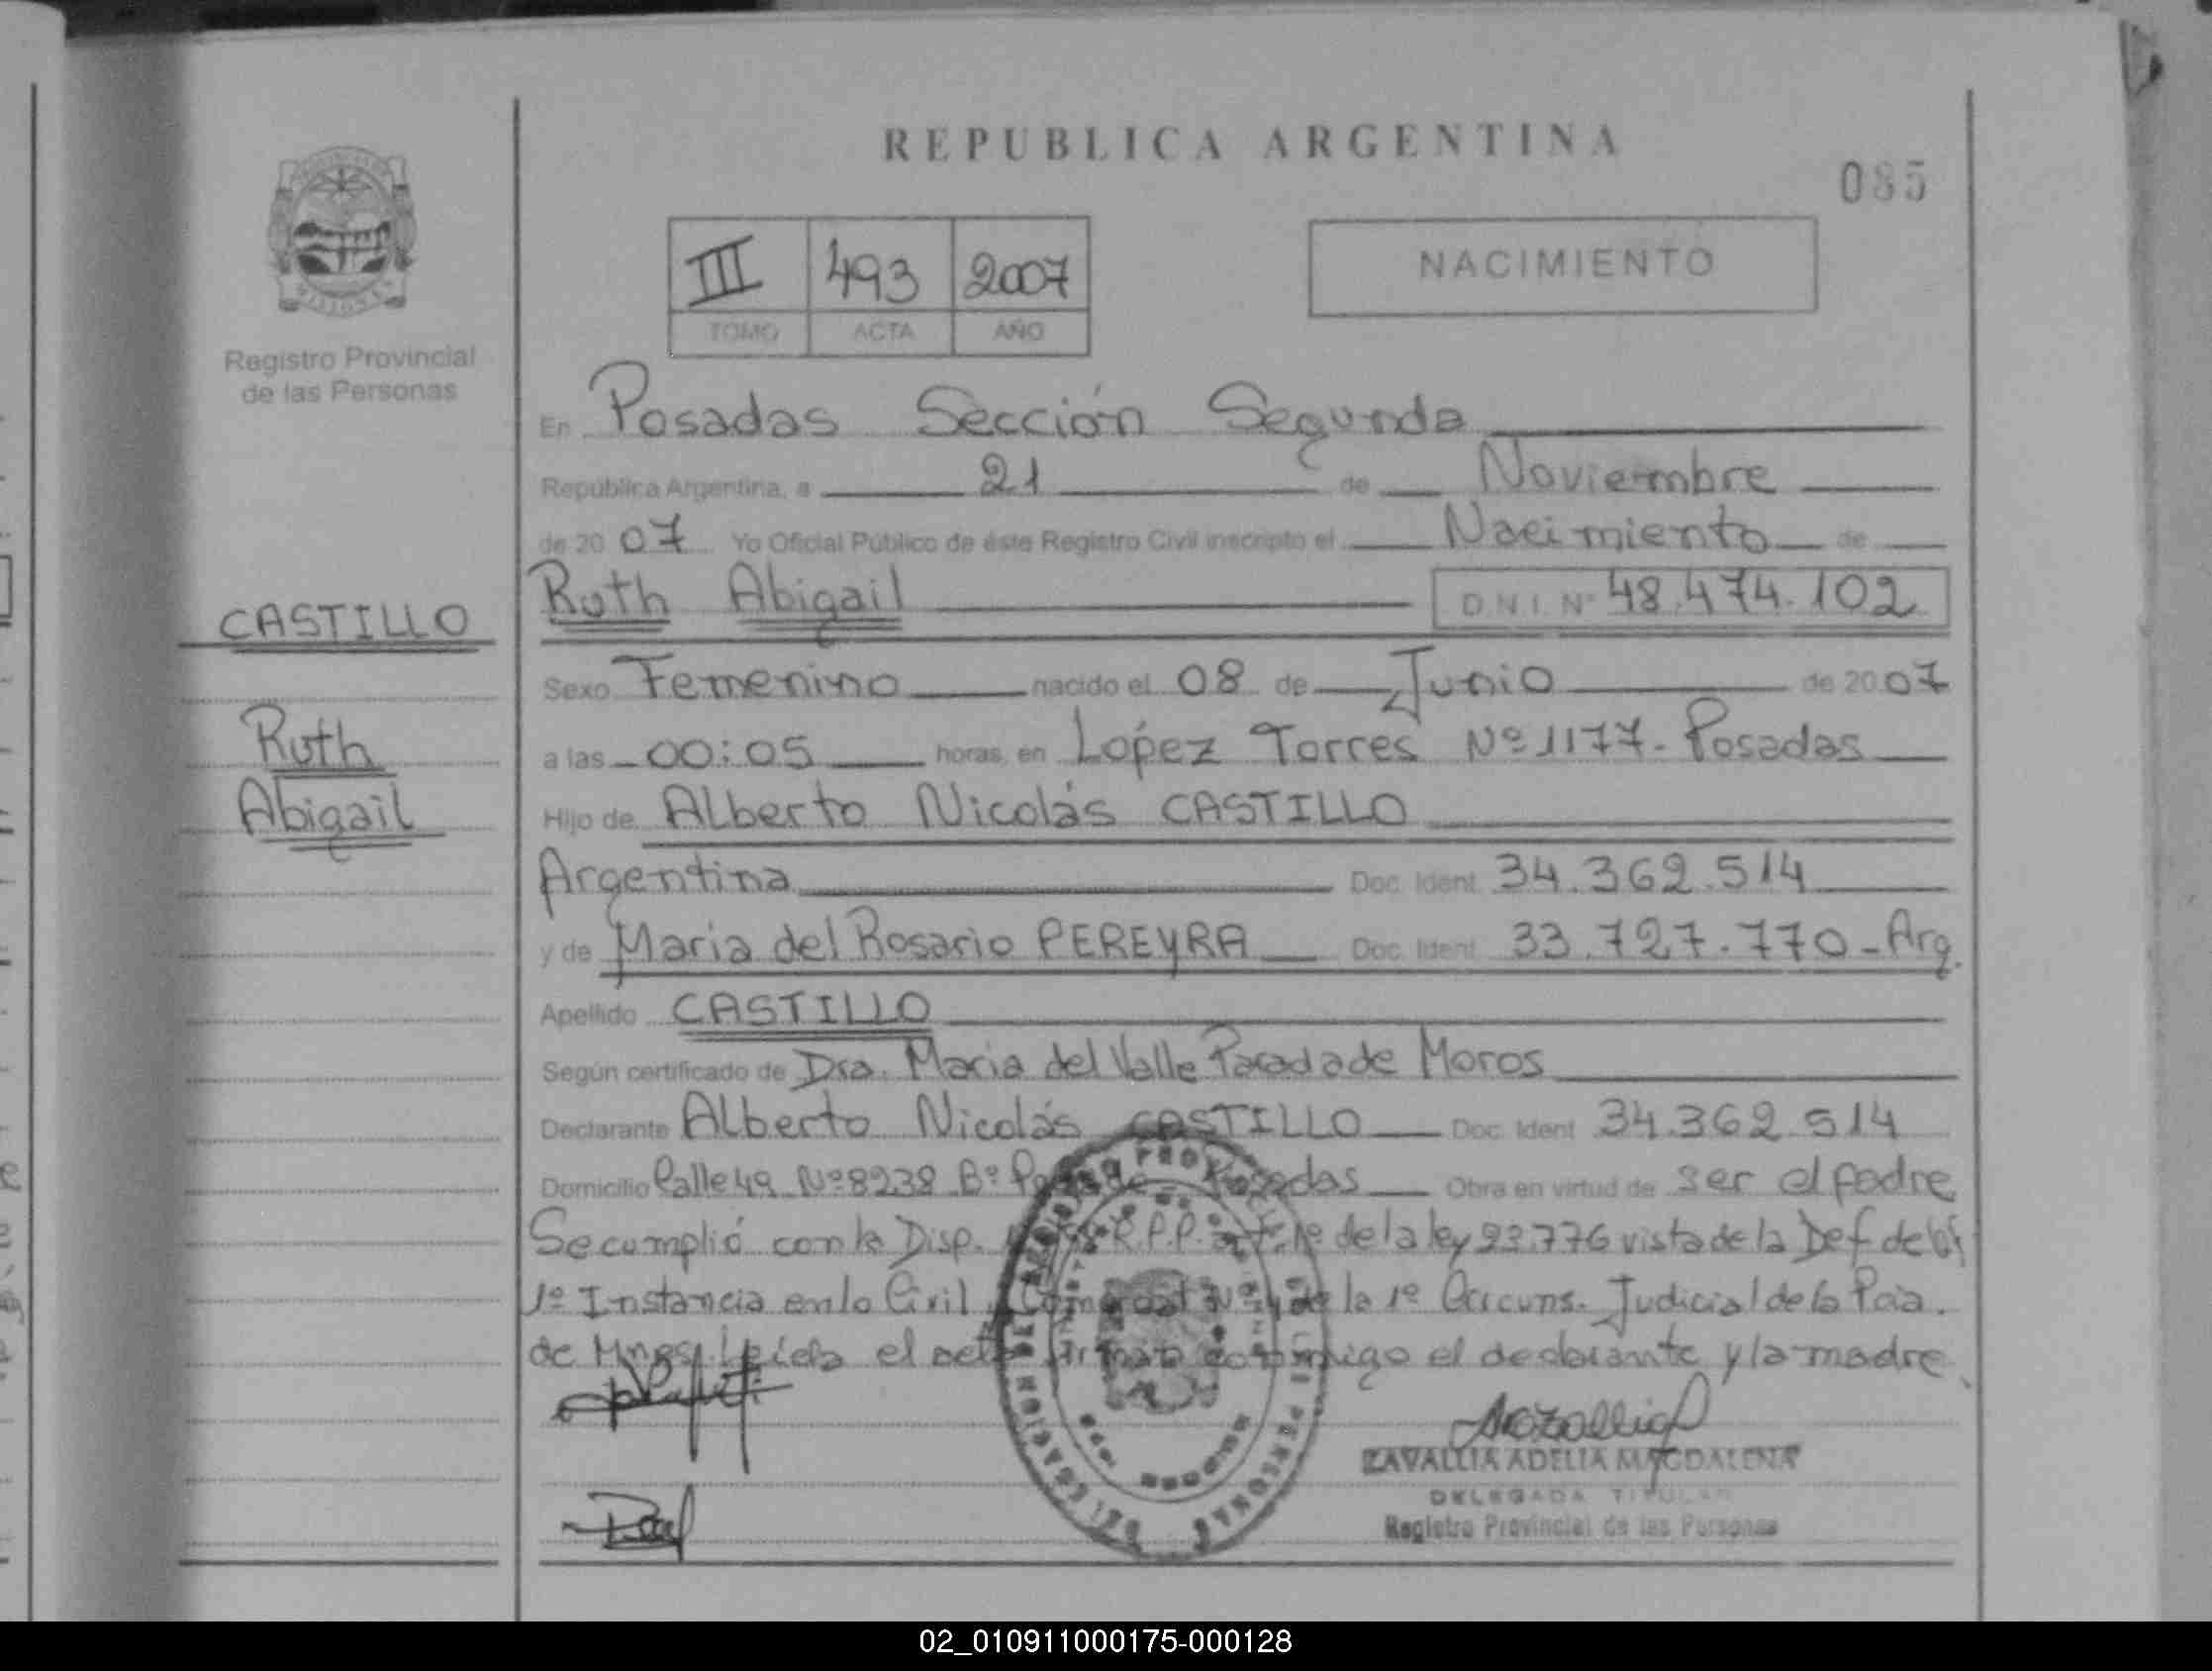 REPUBLICA ARGENTINA
085
III 493 2007
TOMO ACTA AÑO
NACIMIENTO
Registro Provincial
de las Personas
CASTILLO
Ruth
Abigail
En Posadas Sección Segunda
República Argentina, a 21 de Noviembre
de 20 07 Yo Oficial Público de éste Registro Civil inscripto el Nacimiento de
Ruth Abigail D.N.I. Nº 48.474.102
Sexo Femenino nacido el 08 de Junio de 20 07
a las 00:05 horas, en López Torres Nº 1177- Posadas
Hijo de Alberto Nicolás CASTILLO
Argentina Doc. Ident. 34.362.514
y de Maria del Rosario PEREYRA Doc. Ident. 33.727.770-Arg.
Apellido CASTILLO
Según certificado de Dra. Maria del Valle Parada de Moros
Declarante Alberto Nicolás CASTILLO Doc. Ident 34.362.514
Domicilio Calle 49 Nº 8238 Bº Posadas Obra en virtud de ser el padre
Se cumplió con la Disp. R.P.P. art. 1º de la ley 23.776 vista de la Def. de
1º Instancia en lo Civil y Comercial Nº de la 1º Circuns. Judicial de la Pcia.
de Mnes. Leída el acta firman conmigo el declarante y la madre
ZAVALLIA ADELIA MAGDALENA
DELEGADA TITULAR
Registro Provincial de las Personas
02_010911000175-000128